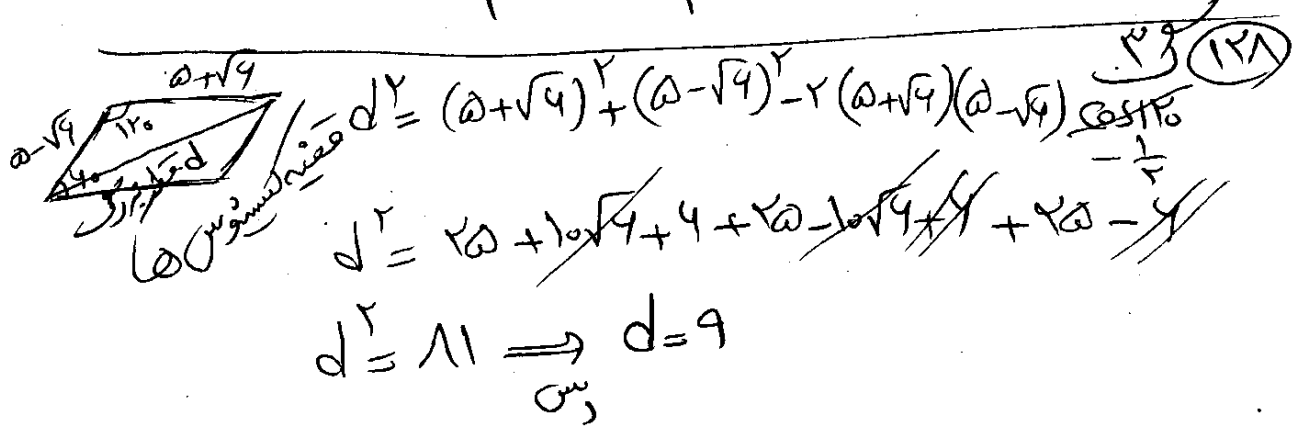 ۱۲۸ گزینه ۳
۵+√۶
۵-√۶
۱۲۰
۶۰
قطر بزرگ = d
قضیه کسینوس ها
d² = (۵+√۶)² + (۵-√۶)² - ۲(۵+√۶)(۵-√۶) cos۱۲۰
-۱/۲
d² = ۲۵ + ۱۰√۶ + ۶ + ۲۵ - ۱۰√۶ + ۶ + ۲۵ - ۶
d² = ۸۱ ⟹ d = ۹
پس